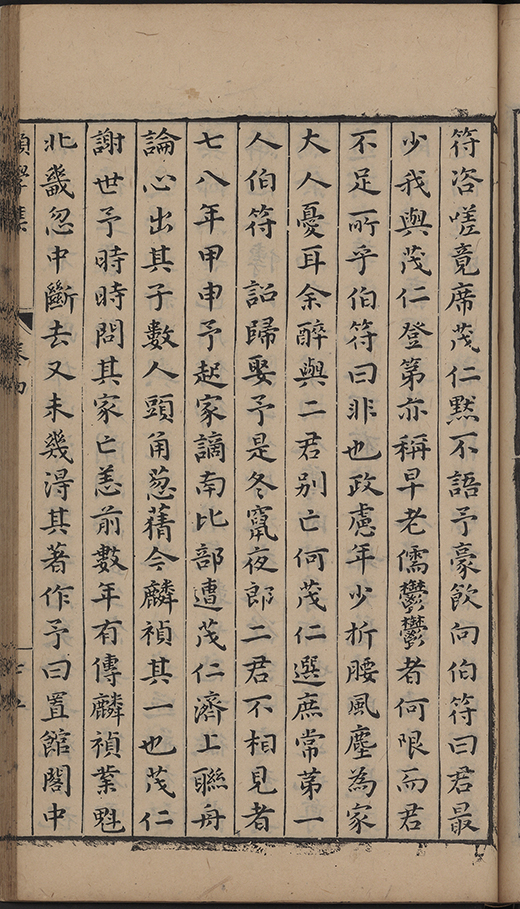 符咨嗟竟席茂仁黙不語予豪飲向伯符曰君最
少我與茂仁登第亦稱早老儒鬱鬱者何限而君
不足所乎伯符曰非也政慮年少折腰風塵為家
大人憂耳余醉與二君别亡何茂仁選庶常第一
人伯符 詔歸娶予是冬竄夜郎二君不相見者
七八年甲申予起家謫南比部遭茂仁濟上聯舟
論心出其子數人頭角葱蒨今麟禎其一也茂仁
謝世予時時問其家亡恙前數年有傳麟禎業魁
北畿忽中斷去又未幾淂其著作予曰置館閣中
學集
卷四